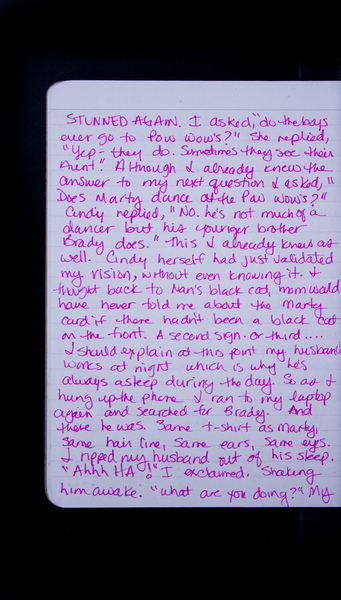 STUNNED AGAIN. I asked, "do the boys
ever go to Pow Wow's?" She replied,
"Yep - they do. Sometimes they see their
Aunt." Although I already knew the
answer to my next question I asked, "
Does Marty dance at the Paw Wow's?"
Cindy replied, "No. he's not much of a
dancer but his younger brother
Brady does." This I already knew as
well. Cindy herself had just validated
my vision, without even knowing it. I
thought back to Nan's black cat, mom would
have never told me about the Marty
card if there hadn't been a black cat
on the front. A second sign. or third....
I should explain at this point my husband
works at night which is why he's
always asleep during the day. So as I
hung up the phone I ran to my laptop
again and searched for Brady. And
there he was. Same t-shirt as Marty,
same hair line, same ears, same eyes.
I ripped my husband out of his sleep.
"Ahhh HA!" I exclaimed. Shaking
him awake. "what are you doing?" My